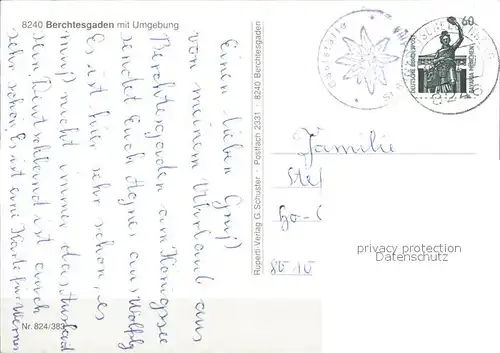 8240 Berchtesgaden mit Umgebung
Einen lieben Gruß
von meinem Uhrlaub aus
Berchtesgaden am Königssee
sendet Euch Agnes aus Wolfbg
Es ist hier sehr schön, es
muß nicht immer das Ausland
sein Deutschland ist auch
sehr schön. Es ist eine Karte für Werner
Nr. 824/383
Ruperti-Verlag G. Schuster · Postfach 2331 · 8240 Berchtesgaden
60
DEUTSCHE BUNDESPOST
BAVARIA MÜNCHEN
Familie
Stef
privacy protection
Datenschutz